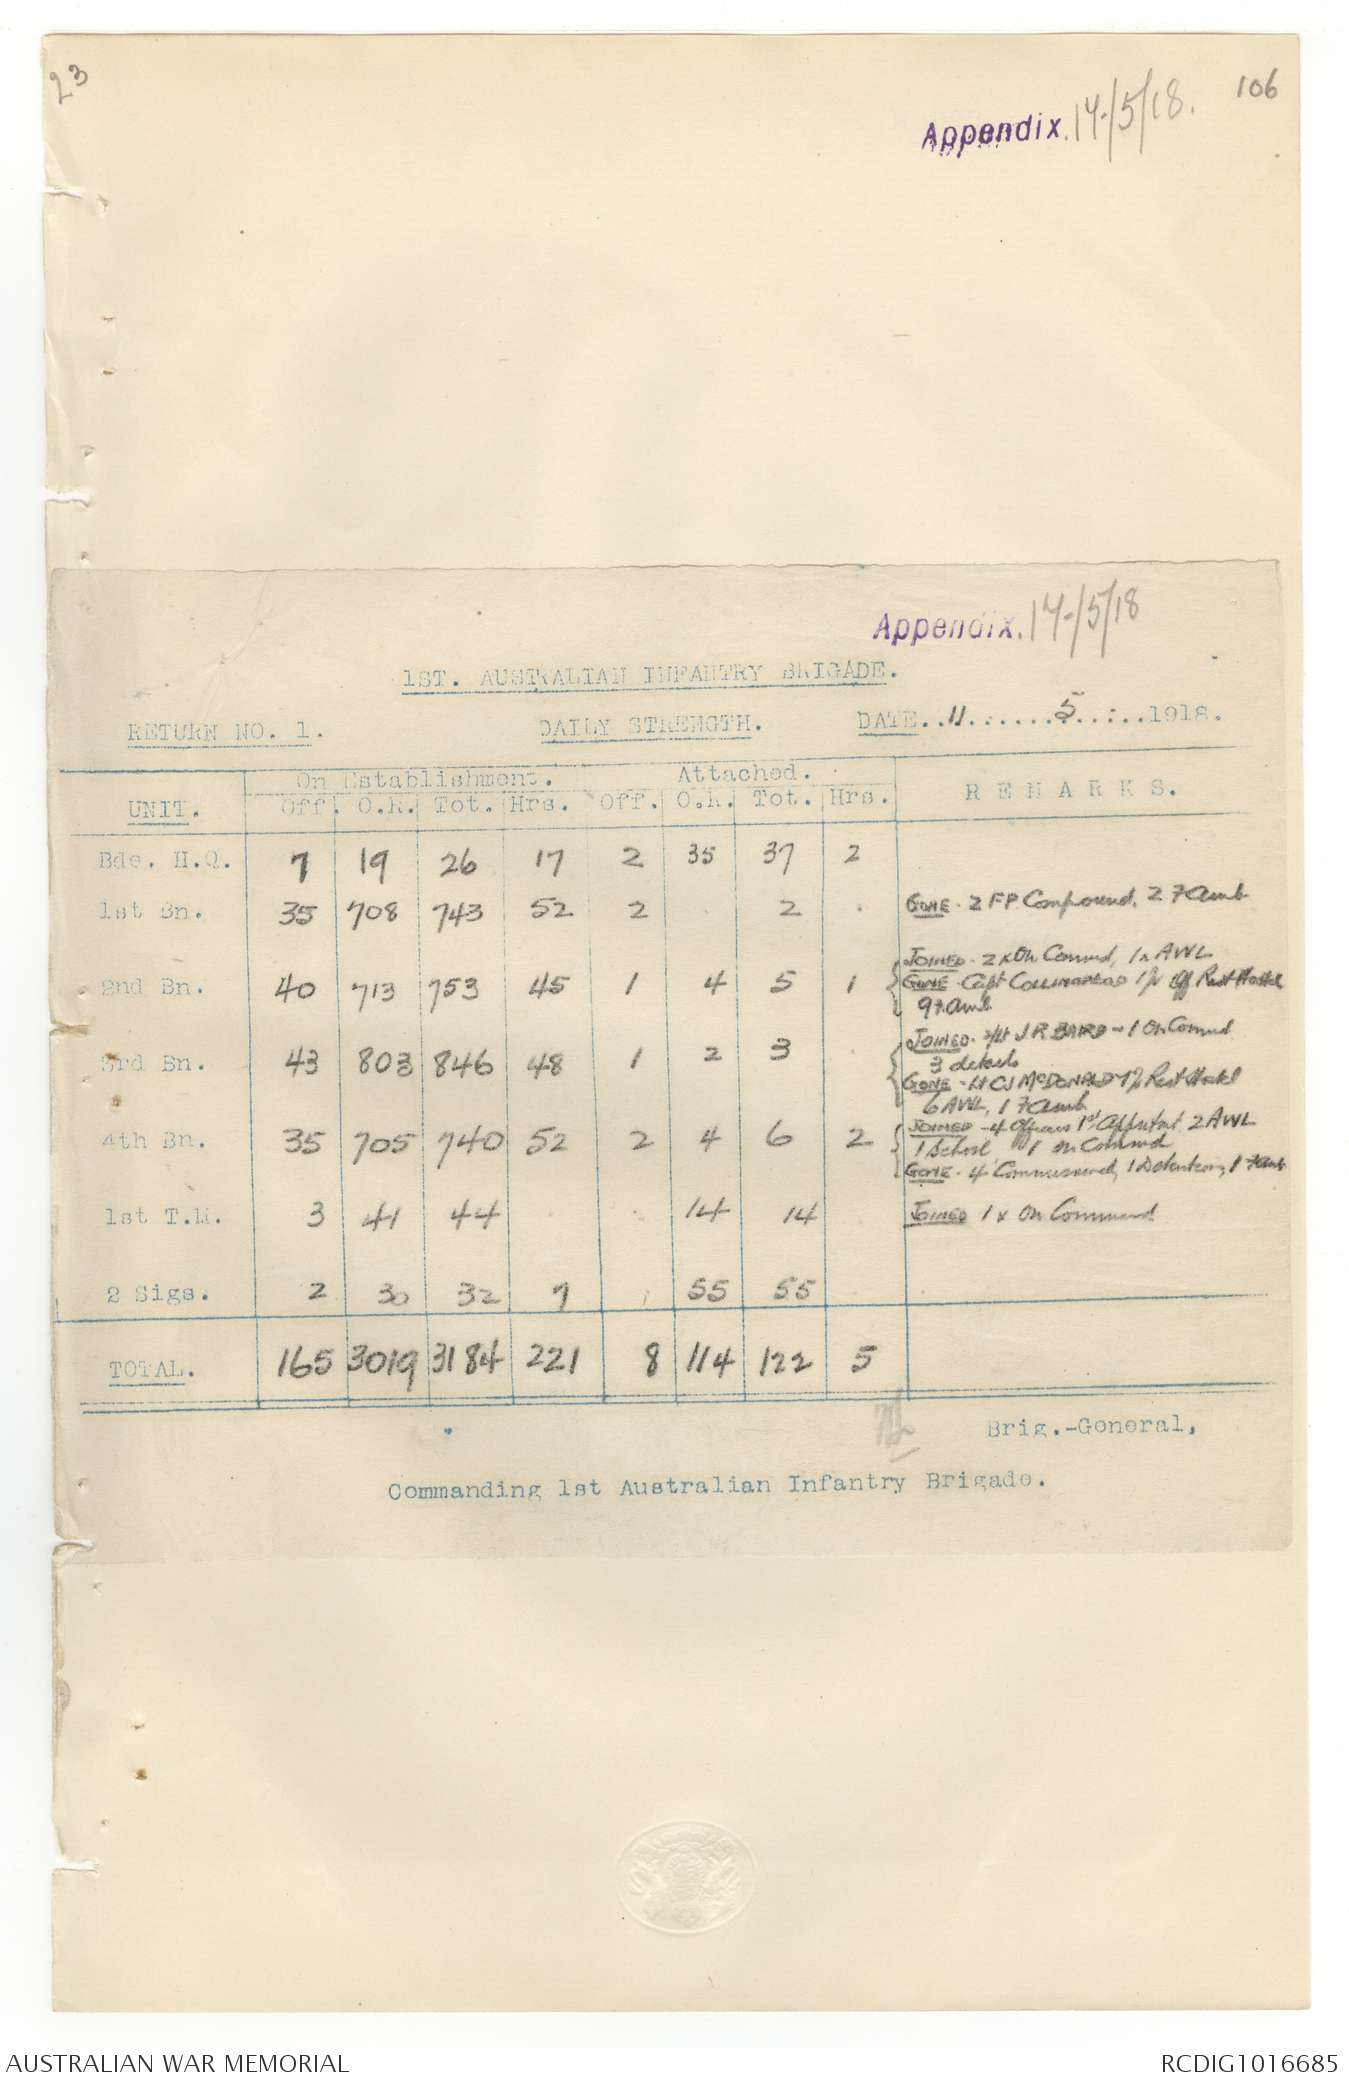 23
106
Appendix. 14/5/18.
Appendix. 14/5/18
1ST. AUSTRALIAN INFANTRY BRIGADE.
RETURN NO. 1. DAILY STRENGTH. DATE. 11 5 1918.
On Establishment. Attached.
UNIT. Off. O.R. Tot. Hrs. Off. O.R. Tot. Hrs. REMARKS.
Bde. H.Q. 7 19 26 17 2 35 37 2
1st Bn. 35 708 743 52 2 . 2 . GONE - 2 FP Compound, 2 F Amb
2nd Bn. 40 713 753 45 1 4 5 1 JOINED - 2 x On Commd, 1 x AWL
GONE - Capt Rest Hostel
9 F. Amb.
3rd Bn. 43 803 846 48 1 2 3 . JOINED - 2/Lt J R BAIRD - 1 On Commd
3 details
GONE - Lt CJ McDONALD Rest Hostel
6 AWL, 1 F Amb
4th Bn. 35 705 740 52 2 4 6 2 JOINED - 4 Officers 1st Appntmt 2 AWL
1 School 1 on Commd
GONE - 4 Commissioned, 1 Detention, 1 F Amb
1st T.M. 3 41 44 14 14 JOINED 1 x On Command
2 Sigs. 2 30 32 7 55 55
TOTAL. 165 3019 3184 221 8 114 122 5
Brig.-General,
Commanding 1st Australian Infantry Brigade.
AUSTRALIAN WAR MEMORIAL
RCDIG1016685